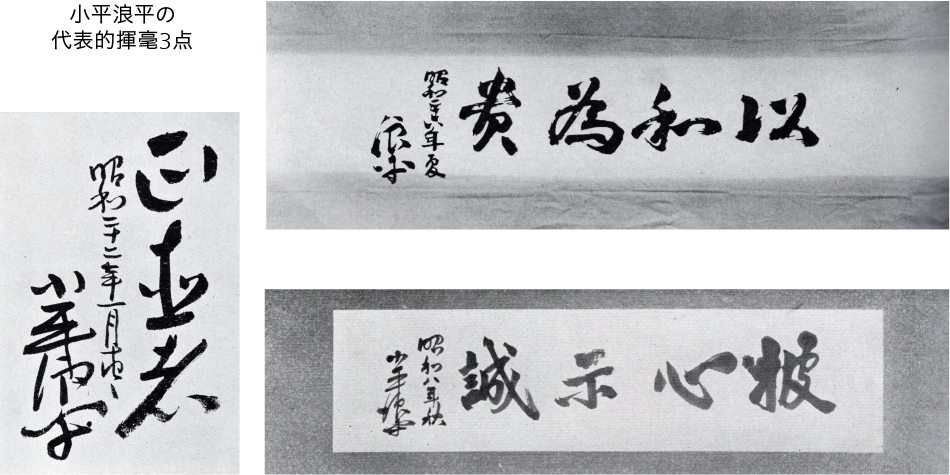 小平浪平の
代表的揮毫3点
以和為貴
昭和二十六年夏
浪平
正直者
昭和二十二年一月
小平浪平
披心示誠
昭和八年秋
小平浪平